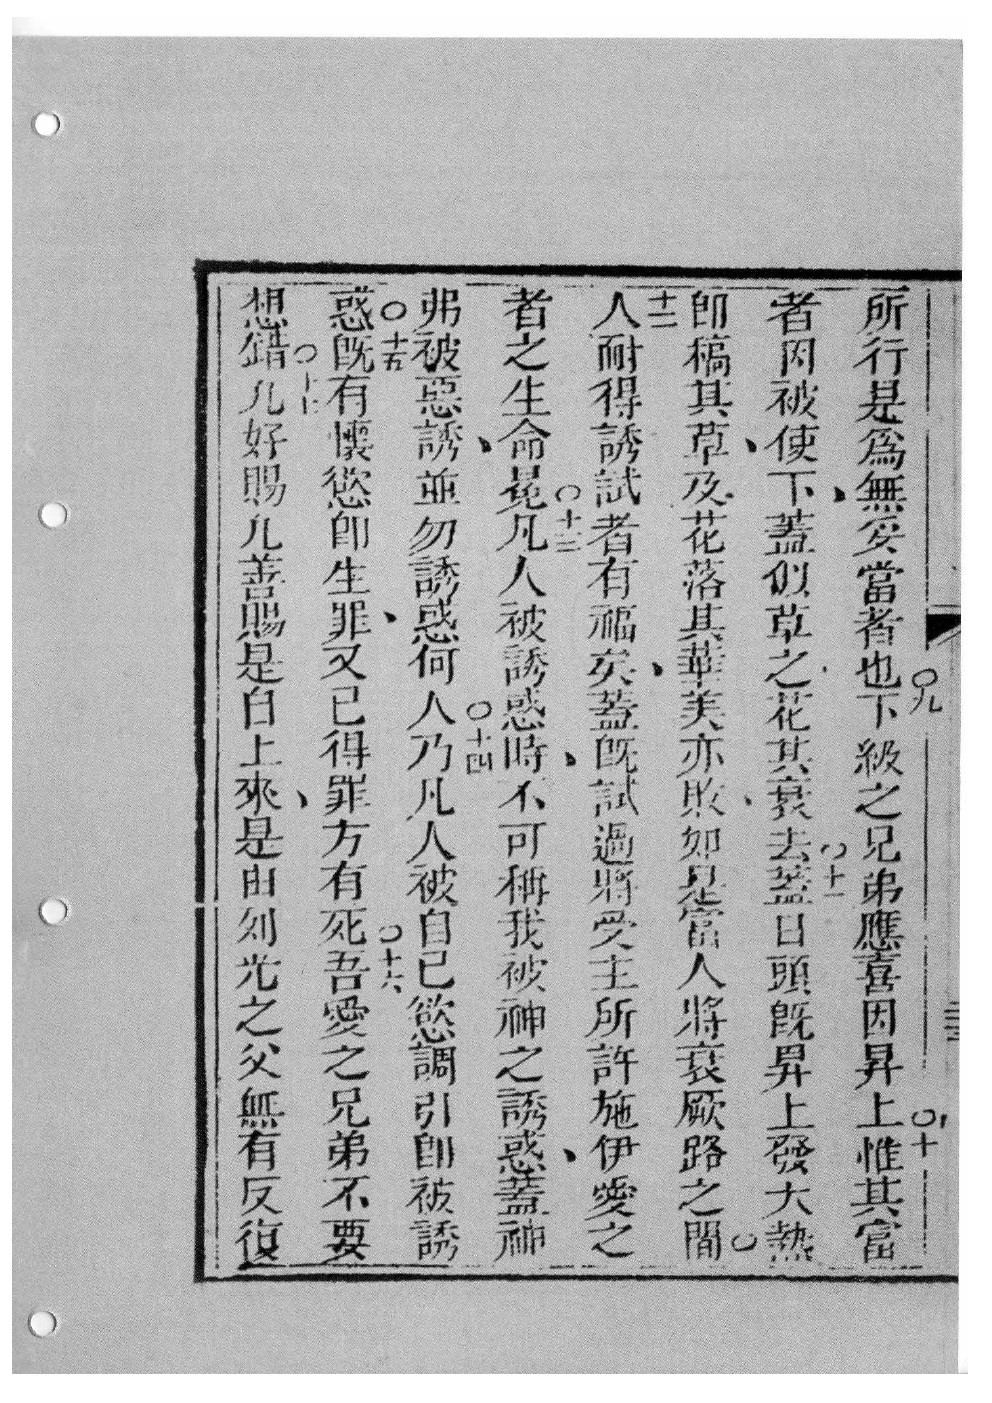 所行是為無妥當者也○九下級之兄弟應喜因昇上○十惟其富
者因被使下蓋似草之花其衰去○十一蓋日頭旣昇上發大熱
卽稿其草及花落其華美亦敗如是富人將衰厥路之間○
十二人耐得誘試者有福矣蓋旣試過將受主所許施伊愛之
者之生命冕○十三凡人被誘惑時不可稱我被神之誘惑蓋神
弗被惡誘並勿誘惑何人○十四乃凡人被自己慾調引卽被誘
惑○十五旣有懷慾卽生罪又已得罪方有死○十六吾愛之兄弟不要
想錯○十七凡好賜凡善賜是自上來是由列光之父無有反復